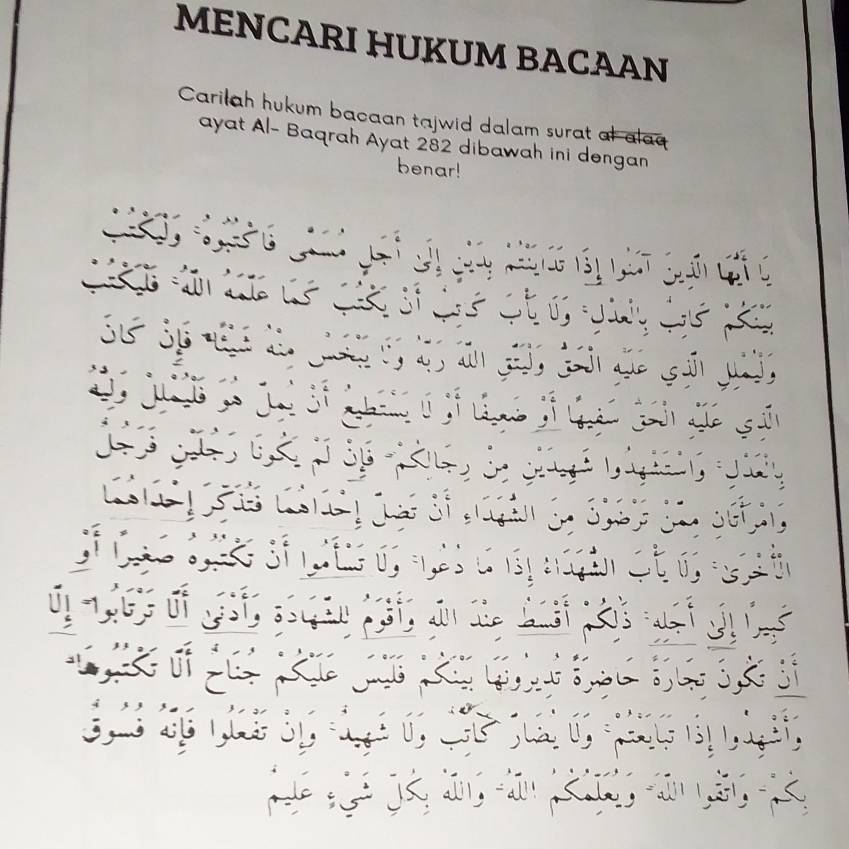 MENCARI HUKUM BACAAN
Carilah hukum bacaan tajwid dalam surat al alaq
ayat Al- Baqrah Ayat 282 dibawah ini dengan
benar!
يَا أَيُّهَا الَّذِينَ آمَنُوا إِذَا تَدَايَنْتُمْ بِدَيْنٍ إِلَىٰ أَجَلٍ مُسَمًّى فَاكْتُبُوهُ ۚ وَلْيَكْتُبْ
بَيْنَكُمْ كَاتِبٌ بِالْعَدْلِ ۚ وَلَا يَأْبَ كَاتِبٌ أَنْ يَكْتُبَ كَمَا عَلَّمَهُ اللَّهُ ۚ فَلْيَكْتُبْ
وَلْيُمْلِلِ الَّذِي عَلَيْهِ الْحَقُّ وَلْيَتَّقِ اللَّهَ رَبَّهُ وَلَا يَبْخَسْ مِنْهُ شَيْئًا ۚ فَإِنْ كَانَ
الَّذِي عَلَيْهِ الْحَقُّ سَفِيهًا أَوْ ضَعِيفًا أَوْ لَا يَسْتَطِيعُ أَنْ يُمِلَّ هُوَ فَلْيُمْلِلْ وَلِيُّهُ
بِالْعَدْلِ ۚ وَاسْتَشْهِدُوا شَهِيدَيْنِ مِنْ رِجَالِكُمْ ۖ فَإِنْ لَمْ يَكُونَا رَجُلَيْنِ فَرَجُلٌ
وَامْرَأَتَانِ مِمَّنْ تَرْضَوْنَ مِنَ الشُّهَدَاءِ أَنْ تَضِلَّ إِحْدَاهُمَا فَتُذَكِّرَ إِحْدَاهُمَا
الْأُخْرَىٰ ۚ وَلَا يَأْبَ الشُّهَدَاءُ إِذَا مَا دُعُوا ۚ وَلَا تَسْأَمُوا أَنْ تَكْتُبُوهُ صَغِيرًا أَوْ
كَبِيرًا إِلَىٰ أَجَلِهِ ۚ ذَٰلِكُمْ أَقْسَطُ عِنْدَ اللَّهِ وَأَقْوَمُ لِلشَّهَادَةِ وَأَدْنَىٰ أَلَّا تَرْتَابُوا ۖ إِلَّا
أَنْ تَكُونَ تِجَارَةً حَاضِرَةً تُدِيرُونَهَا بَيْنَكُمْ فَلَيْسَ عَلَيْكُمْ جُنَاحٌ أَلَّا تَكْتُبُوهَا ۗ
وَأَشْهِدُوا إِذَا تَبَايَعْتُمْ ۚ وَلَا يُضَارَّ كَاتِبٌ وَلَا شَهِيدٌ ۚ وَإِنْ تَفْعَلُوا فَإِنَّهُ فُسُوقٌ
بِكُمْ ۗ وَاتَّقُوا اللَّهَ ۖ وَيُعَلِّمُكُمُ اللَّهُ ۗ وَاللَّهُ بِكُلِّ شَيْءٍ عَلِيمٌ